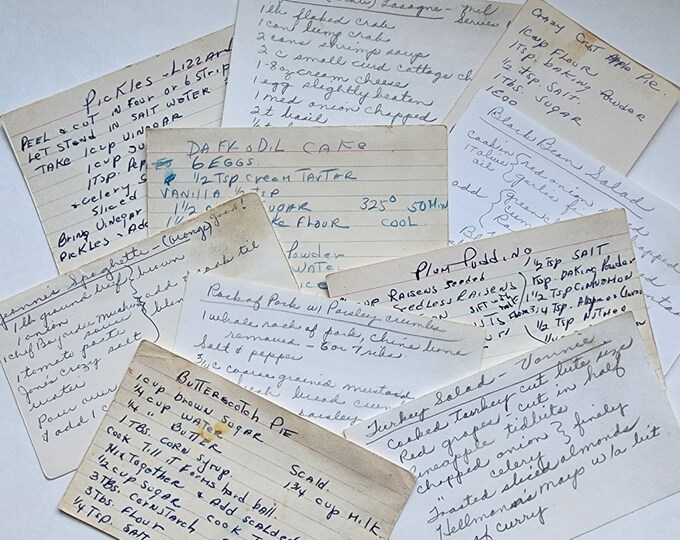 PICKLES - LIZZAR
PEEL & CUT IN FOUR OR 6 STRIP
LET STAND IN SALT WATER
TAKE 1 CUP VINEGAR
1 CUP
1 TSP. PEP
& CELERY S
SLICED
BRING VINEGAR
PICKLES & ADD
Lasagne - Mil
Series
1 lb flaked crab
1 can lump crab
2 cans shrimp soup
2 c small curd cottage ch
1-8oz cream cheese
1 egg slightly beaten
1 med onion chopped
2 t basil
CRAZY CRUST APPLE PIE.
1 CUP FLOUR
1 TSP. BAKING POWDER
1/2 TSP. SALT.
1 TBS. SUGAR
1 EGG
DAFFODIL CAKE
6 EGGS.
1/2 TSP CREAM TARTAR
VANILLA 1/2 TSP
1 1/2 SUGAR 325° 50 MIN
KE FLOUR COOL
POWDER
WATER
Black Bean Salad
cooking red onion
Italian garlic
oil
add
PLUM PUDDING
CUP RAISENS SEEDED
SEEDLESS RAISENS
SIFT
1/2 TSP SALT
1 TSP. BAKING POWDER
1 1/2 TSP CINNAMON
1/4 TSP.
1/2 TSP. NUTMEG
Jennie's Spaghetti - good!
1 lb ground beef brown
1 onion
1 Chef Boyardee mush
1 tomato paste
Jane's crazy salt
water
Pour
& add 1 c
add & cook til
Rack of Pork w/ Parsley crumbs
1 whole rack of pork, chine bone
removed - 6 or 7 ribs
Salt & pepper
3/4 c coarse grained mustard
fresh bread cru
parsley
BUTTERSCOTCH PIE
1 CUP BROWN SUGAR
1/4 CUP WATER
1/4 " BUTTER
1 TBS. CORN SYRUP.
COOK TILL IT FORMS HARD BALL.
MIX TOGETHER & ADD SCALDED
1/2 CUP SUGAR & COOK T
3 TBS. CORNSTARCH
3 TBS. FLOUR
1/4 TSP. SALT
SCALD.
1 3/4 CUP MILK.
Turkey Salad - Vonnie
Cooked turkey cut bite size
Red grapes, cut in half
Pineapple tidbits
Chopped onion } finely
" celery
Toasted sliced almonds
Hellmann's mayo w/a bit
of curry.